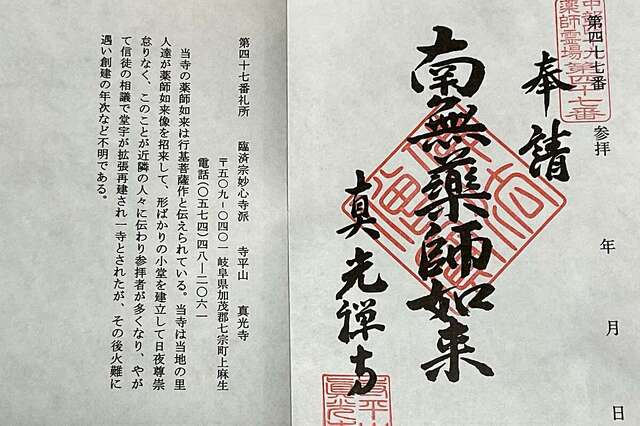 第四七七番
参拝
年
月
日
中部四十九
薬師霊場第四十七番
奉請
南無薬師如来
真光禅寺
第四十七番札所 臨済宗妙心寺派 寺平山 真光寺
〒五〇九-〇四〇一 岐阜県加茂郡七宗町上麻生
電話(〇五七四)四八-二〇六一
当寺の薬師如来は行基菩薩作と伝えられている。当寺は当地の里
人達が薬師如来像を招来して、形ばかりの小堂を建立して日夜尊崇
怠りなく、このことが近隣の人々に伝わり参拝者が多くなり、やが
て信徒の相議で堂宇が拡張再建され一寺とされたが、その後火難に
遇い創建の年次など不明である。